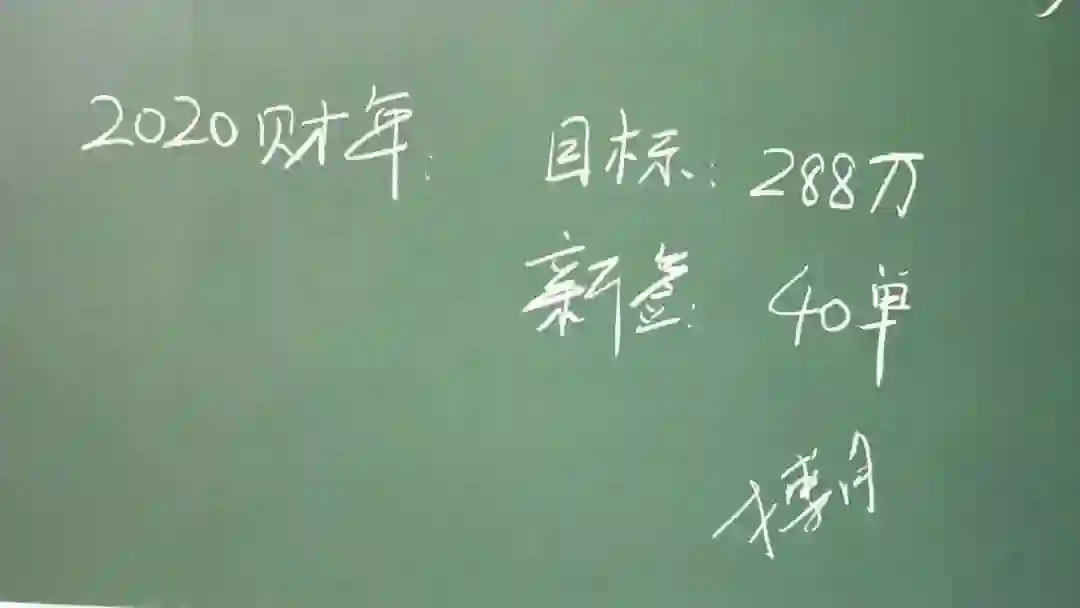 2020财年: 目标: 288万
新签: 40单